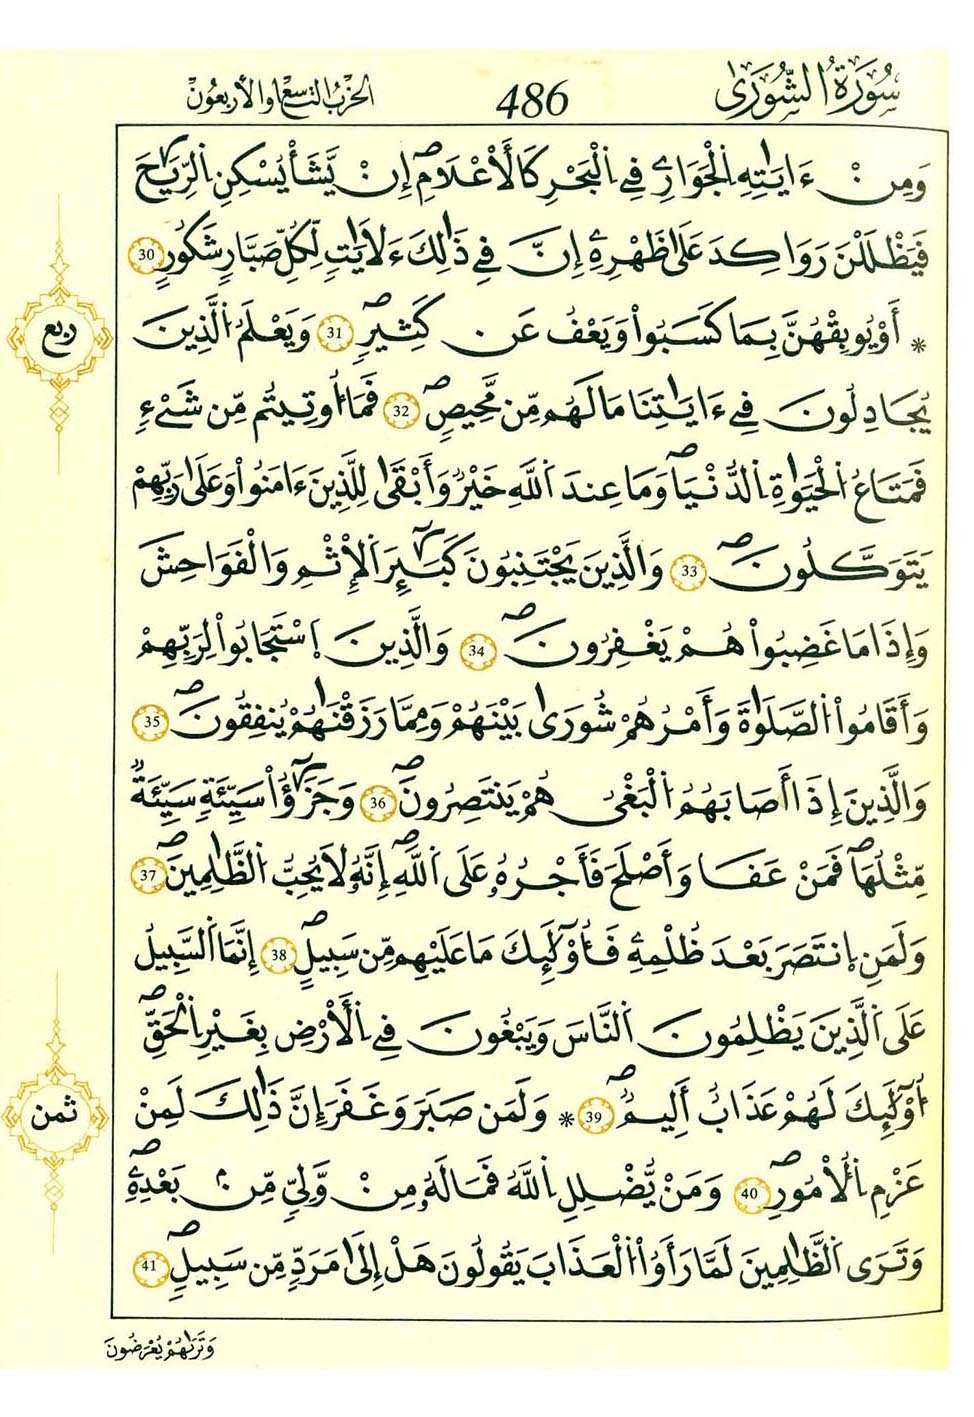 سُورَةُ الشُّورَىٰ
486
الحزب التاسع والأربعون
وَمِنْ ءَايَٰتِهِ اِ۬لْجَوَارِۦ فِے اِ۬لْبَحْرِ كَالَاعْلَٰمِۖ إِنْ يَّشَأْ يُسْكِنِ اِ۬لرِّيَٰحَ
فَيَظْلَلْنَ رَوَاكِدَ عَلَىٰ ظَهْرِهِۦٓ إِنَّ فِے ذَٰلِكَ ءَلَايَٰتٖ لِّكُلِّ صَبَّارٖ شَكُورٍ 30
* أَوْ يُوبِقْهُنَّ بِمَا كَسَبُواْ وَيَعْفُ عَن كَثِيرٖۖ 31 وَيَعْلَمُ اُ۬لذِينَ
يُجَٰدِلُونَ فِےٓ ءَايَٰتِنَا مَا لَهُم مِّن مَّحِيصٖۖ 32 فَمَآ أُوتِيتُم مِّن شَےْءٖ
فَمَتَاعُ اُ۬لْحَيَوٰةِ اِ۬لدُّنْيَاۖ وَمَا عِندَ اَ۬للَّهِ خَيْرٞ وَأَبْقَىٰ لِلذِينَ ءَامَنُواْ وَعَلَىٰ رَبِّهِمْ
يَتَوَكَّلُونَۖ 33 وَالذِينَ يَجْتَنِبُونَ كَبَٰٓئِرَ اَ۬لْإِثْمِ وَالْفَوَاحِشَ
وَإِذَا مَا غَضِبُواْ هُمْ يَغْفِرُونَۖ 34 وَالذِينَ اَ۪سْتَجَابُواْ لِرَبِّهِمْ
وَأَقَامُواْ اُ۬لصَّلَوٰةَ وَأَمْرُهُمْ شُورَىٰ بَيْنَهُمْ وَمِمَّا رَزَقْنَٰهُمْ يُنفِقُونَۖ 35
وَالذِينَ إِذَآ أَصَابَهُمُ اُ۬لْبَغْىُ هُمْ يَنتَصِرُونَۖ 36 وَجَزَٰٓؤُاْ سَيِّئَةٖ سَيِّئَةٞ
مِّثْلُهَاۖ فَمَنْ عَفَا وَأَصْلَحَ فَأَجْرُهُۥ عَلَى اَ۬للَّهِۖ إِنَّهُۥ لَا يُحِبُّ اُ۬لظَّٰلِمِينَۖ 37
وَلَمَنِ اِ۪نتَصَرَ بَعْدَ ظُلْمِهِۦ فَأُوْلَٰٓئِكَ مَا عَلَيْهِم مِّن سَبِيلٍۖ 38 إِنَّمَا اَ۬لسَّبِيلُ
عَلَى اَ۬لذِينَ يَظْلِمُونَ اَ۬لنَّاسَ وَيَبْغُونَ فِے اِ۬لْأَرْضِ بِغَيْرِ اِ۬لْحَقِّۖ
أُوْلَٰٓئِكَ لَهُمْ عَذَابٌ أَلِيمٞۖ 39 * وَلَمَن صَبَرَ وَغَفَرَ إِنَّ ذَٰلِكَ لَمِنْ
عَزْمِ اِ۬لُامُورِۖ 40 وَمَنْ يُّضْلِلِ اِ۬للَّهُ فَمَا لَهُۥ مِنْ وَّلِيّٖ مِّنۢ بَعْدِهِۦۖ
وَتَرَى اَ۬لظَّٰلِمِينَ لَمَّا رَأَوُاْ اُ۬لْعَذَابَ يَقُولُونَ هَلْ إِلَىٰ مَرَدّٖ مِّن سَبِيلٖۖ 41
وَتَرَىٰهُمْ يُعْرَضُونَ
ربع
ثمن